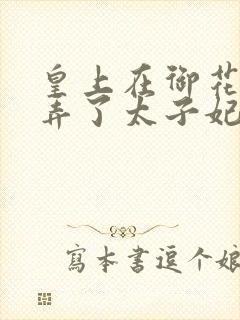 皇上在御花
弄了太子妃
寫本書逗个娘